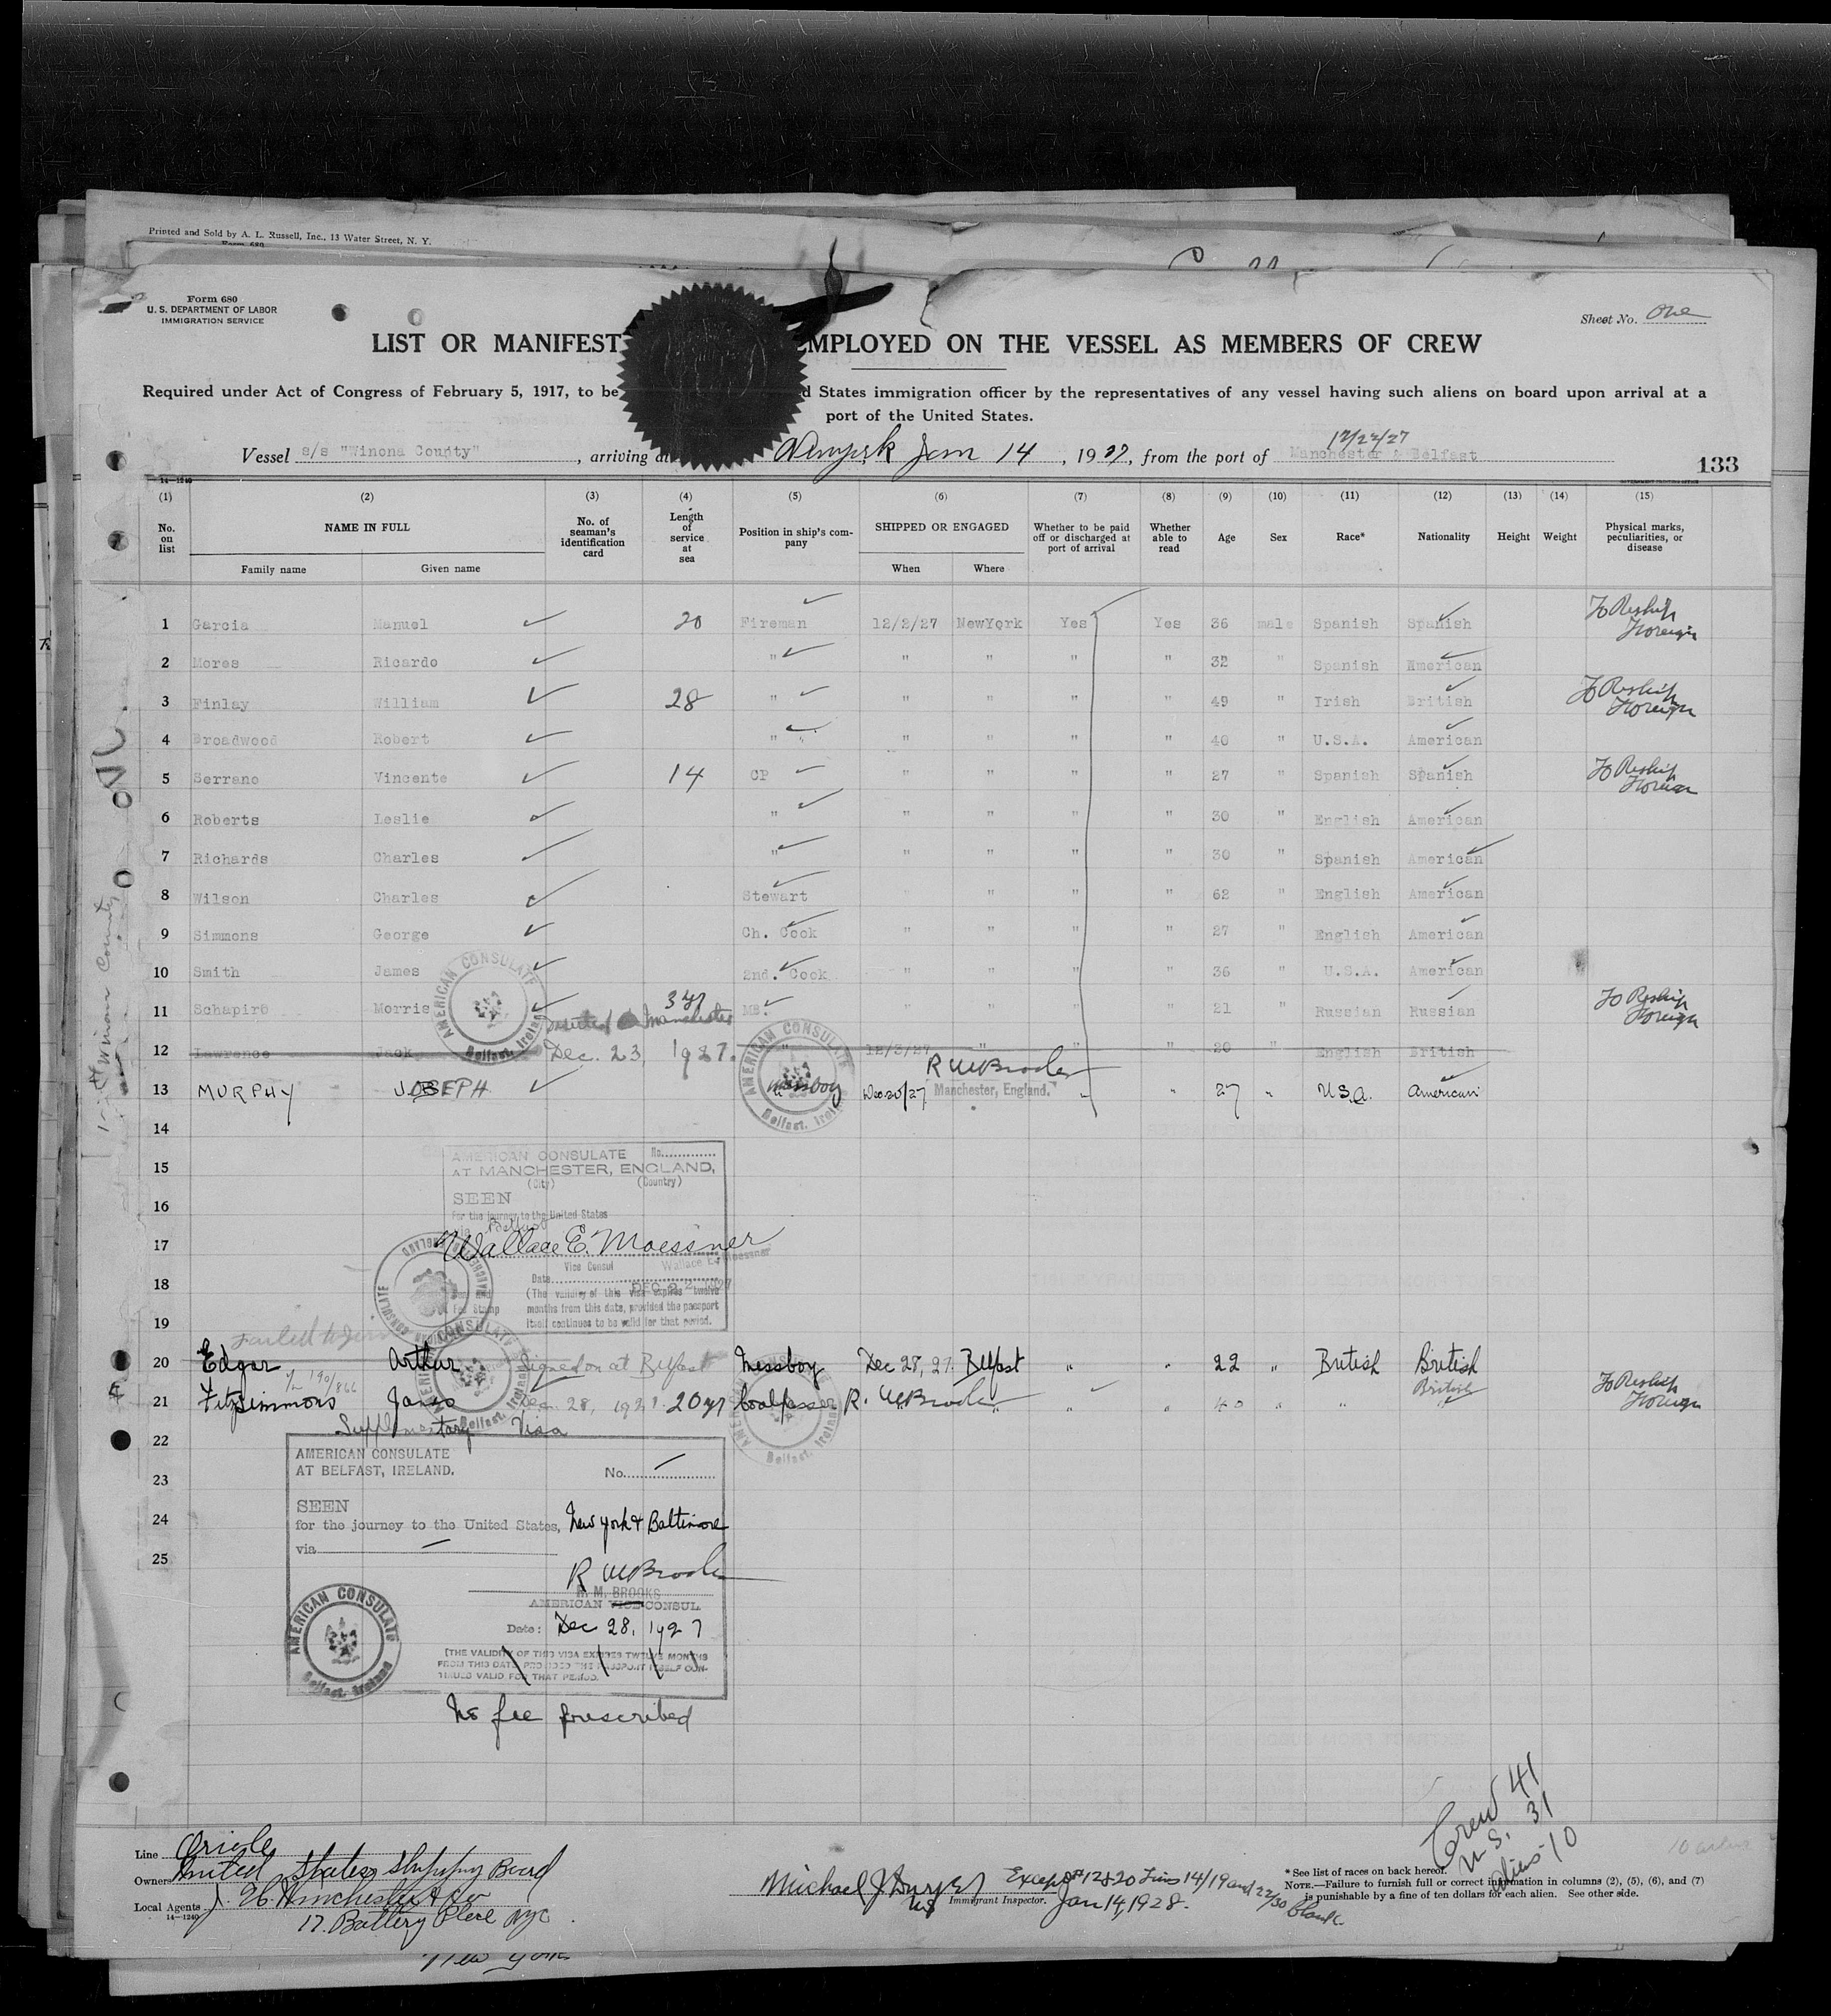 Printed and Sold by A. L. Russell, Inc., 13 Water Street, N. Y.
Form 680
Form 680
U. S. DEPARTMENT OF LABOR
IMMIGRATION SERVICE
Sheet No. One
LIST OR MANIFEST EMPLOYED ON THE VESSEL AS MEMBERS OF CREW
Required under Act of Congress of February 5, 1917, to be d States immigration officer by the representatives of any vessel having such aliens on board upon arrival at a
port of the United States.
12/22/27
Vessel s/s "Winona County", arriving at Newyork Jan 14, 19, from the port of Manchester & Belfast
133
14—1240
(1) (2) (3) (4) (5) (6) (7) (8) (9) (10) (11) (12) (13) (14) (15)
No. on list NAME IN FULL No. of seaman's identification card Length of service at sea Position in ship's company SHIPPED OR ENGAGED Whether to be paid off or discharged at port of arrival Whether able to read Age Sex Race* Nationality Height Weight Physical marks, peculiarities, or disease
Family name Given name When Where
1 Garcia Manuel 20 Fireman 12/2/27 NewYork Yes Yes 36 male Spanish Spanish To Reship Foreign
2 Mores Ricardo " " " " " 32 " Spanish American
3 Finlay William 28 " " " " " 49 " Irish British To Reship Foreign
4 Broadwood Robert " " " " " 40 " U.S.A. American
5 Serrano Vincente 14 CP " " " " 27 " Spanish Spanish To Reship Foreign
6 Roberts Leslie " " " " " 30 " English American
7 Richards Charles " " " " " 30 " Spanish American
8 Wilson Charles Stewart " " " " 62 " English American
9 Simmons George Ch. Cook " " " " 27 " English American
10 Smith James 2nd. Cook " " " " 36 " U.S.A. American
11 Schapiro Morris 3 yr MB. " " " " 21 " Russian Russian To Reship Foreign
Manchester
12 Lawrence Jack Dec. 23, 1927. " 12/3/27 " " " 20 " English British
R M Brooks
13 MURPHY JOSEPH messboy Dec 20/27 Manchester, England. " " 27 " U.S.A. American
14
AMERICAN CONSULATE No.
15 AT MANCHESTER, ENGLAND,
(City) (Country)
16 SEEN
For the journey to the United States
via Belfast
17 Wallace E. Moessner
Vice Consul Wallace E. Moessner
18 Date DEC 22 1927
(The validity of this visa expires twelve
Fee Stamp months from this date, provided the passport
itself continues to be valid for that period.
19
Failed to join
20 Edgar Arthur Signed on at Belfast Messboy Dec 28, 27. Belfast " " 22 " British British
190/866
British
21 Fitzsimmons James Dec. 28, 1927. 20 yr Coalpasser R. M Brooks " " 40 " " To Reship Foreign
Supplementary Visa
22
AMERICAN CONSULATE
AT BELFAST, IRELAND. No.
23
SEEN
24 for the journey to the United States, New York & Baltimore
via
25
R M Brooks
R. M. BROOKS
AMERICAN VICE CONSUL
Date: Dec 28, 1927
(THE VALIDITY OF THIS VISA EXPIRES TWELVE MONTHS
FROM THIS DATE PROVIDED THE PASSPORT ITSELF CON-
TINUES VALID FOR THAT PERIOD.
AMERICAN CONSULATE
Belfast, Ireland
No fee prescribed
Crew 41
U. S. 31
Aliens 10
10 aliens
Line Oriole
Owners United States Shipping Board
Local Agents J. H. Winchester & Co
14—1240
17. Battery Place NYC
Michael J. Dwyer Except #12 & 20 Lines 14/19 and 22/30 blank.
Immigrant Inspector. Jan 14, 1928.
* See list of races on back hereof.
NOTE.—Failure to furnish full or correct information in columns (2), (5), (6), and (7)
is punishable by a fine of ten dollars for each alien. See other side.
New York